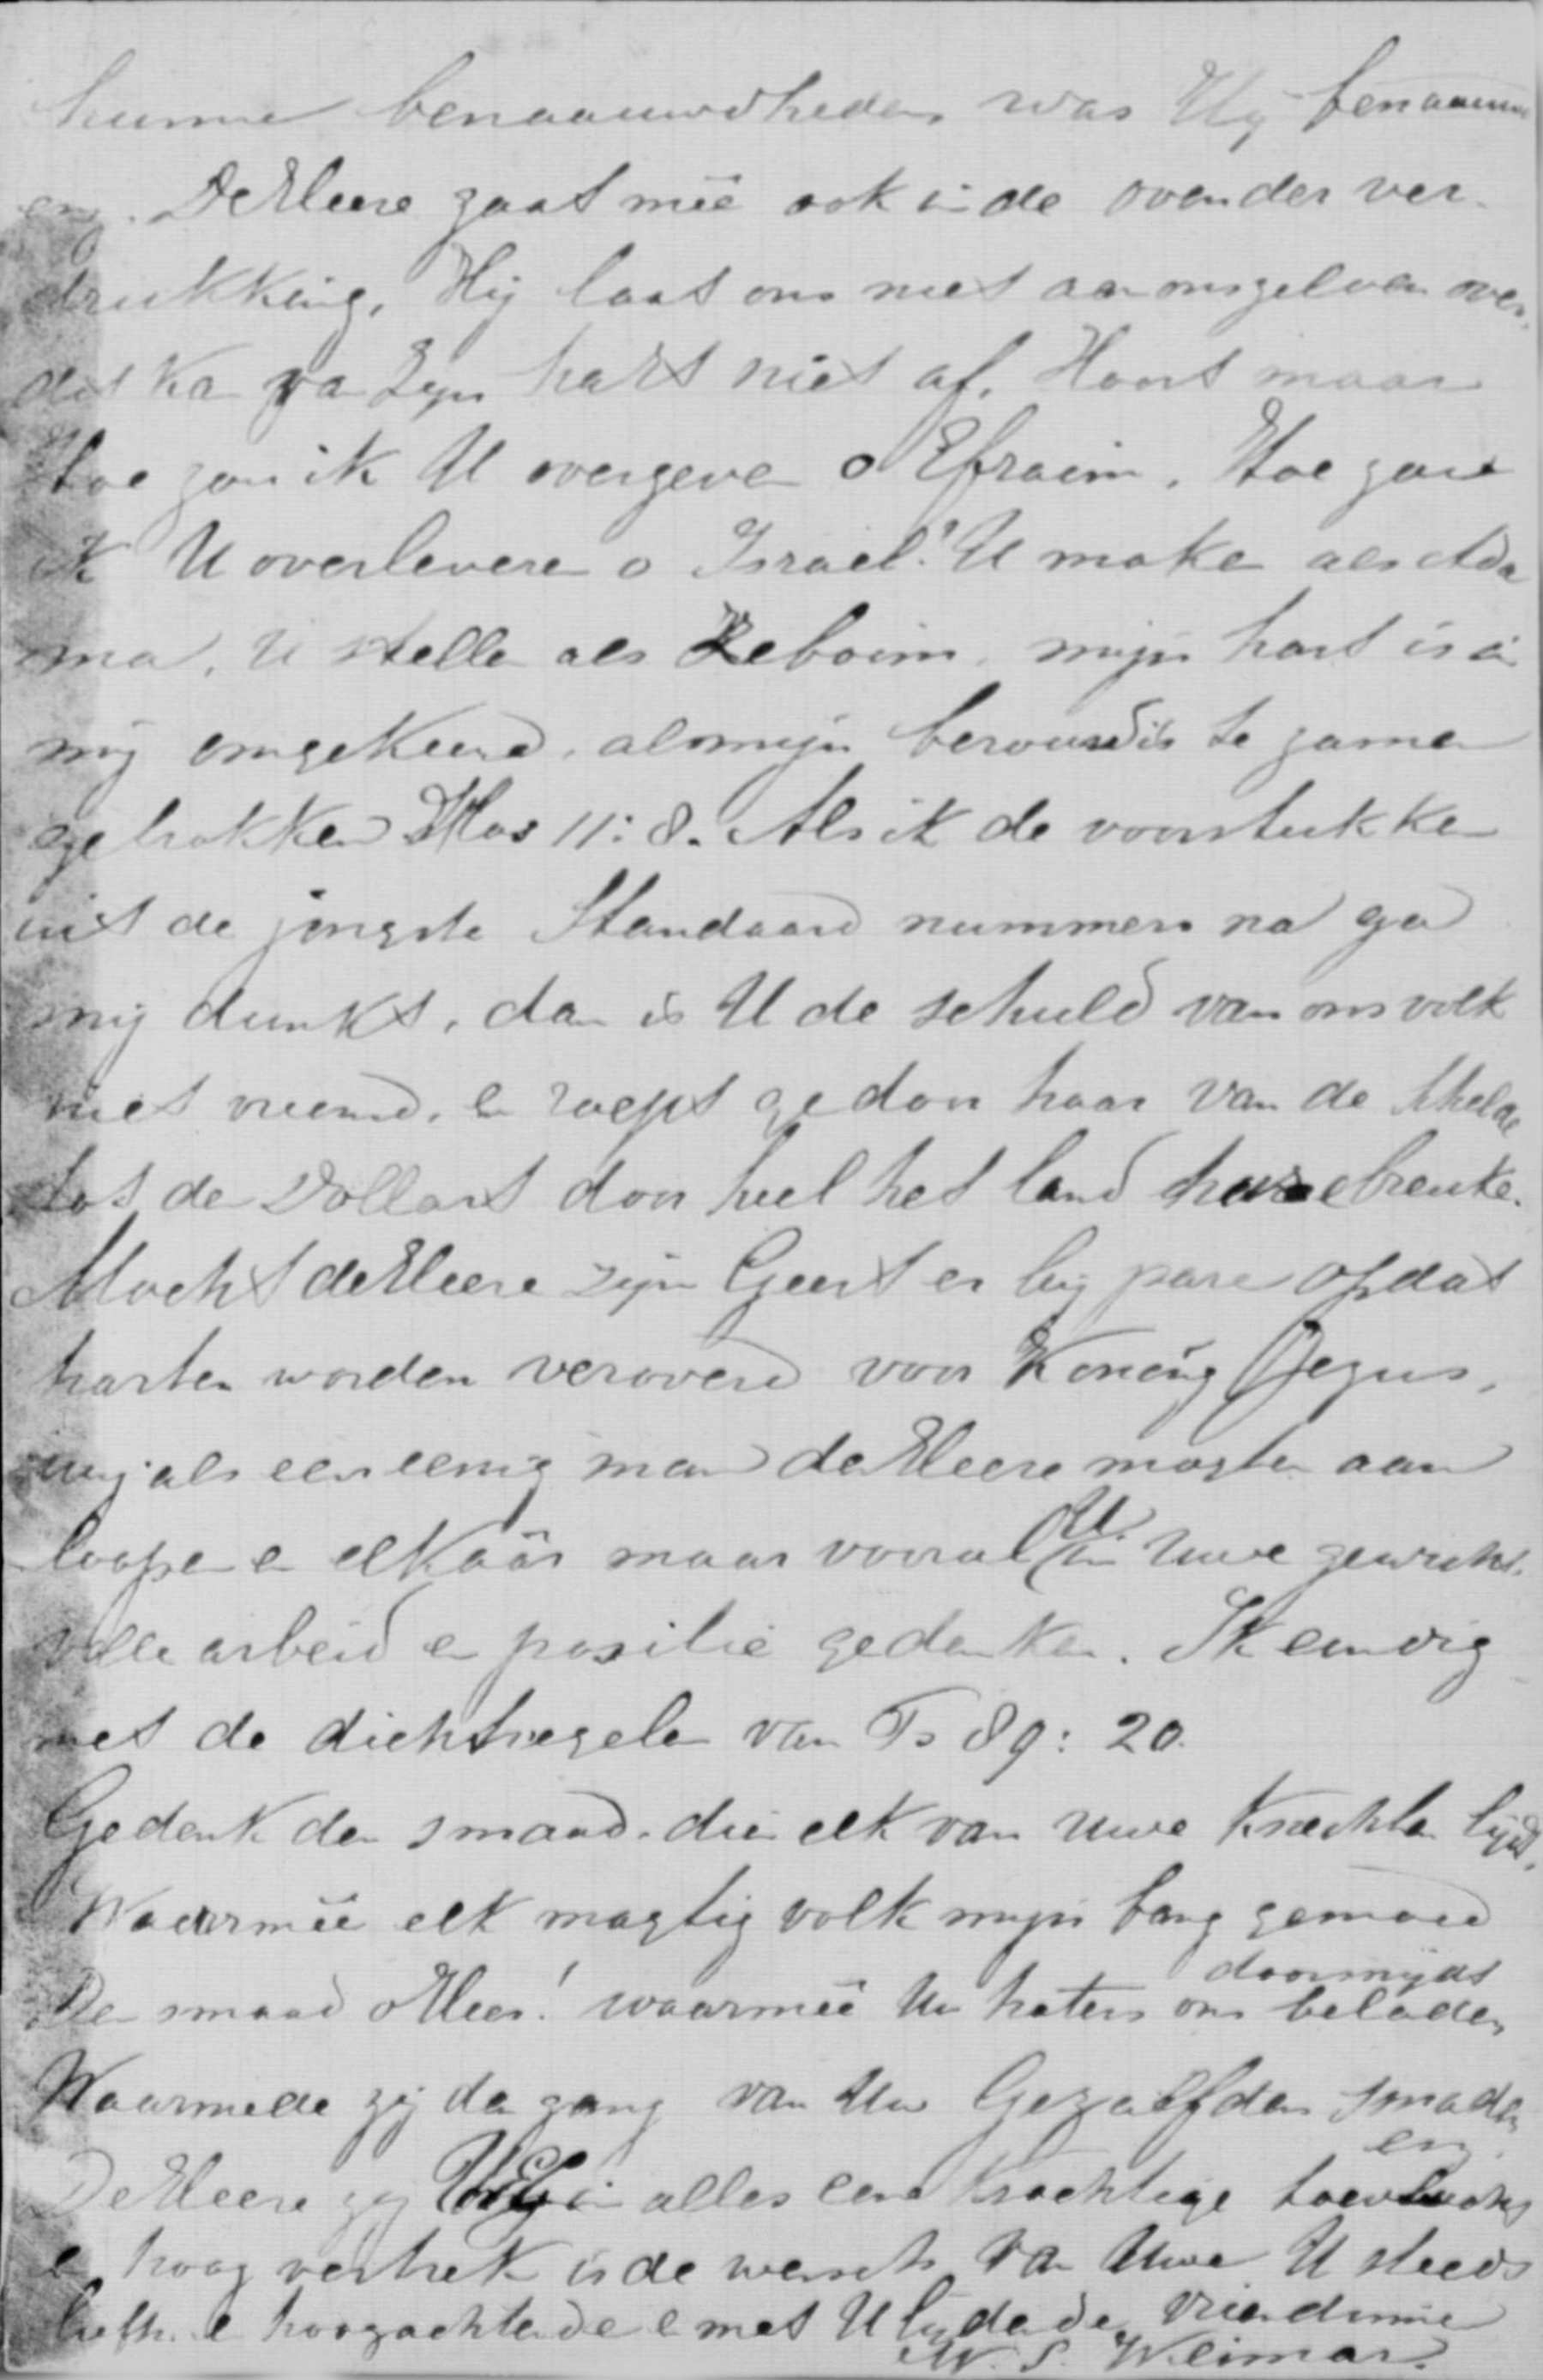 hunne benaauwdheden was Hij benaauwd
enz. De Heere gaat meê ook in de oven der ver-
drukking, Hij laat ons niet aan onszelven over,
dat kan van Zijn hart niet af. Hoort maar
Hoe zou ik U overgeven o Efraim, Hoe zou
ik U overleveren o Israel? U maken als Ada
ma, U stellen als Zeboim, mijn hart is in
mij omgekeerd, al mijn berouw is te zamen
getrokken Hos 11:8. Als ik de voorstukken
uit de jongste Standaard nummers na ga
mij dunkt, dan is U de schuld van ons volk
niet vreemd, en roept ge den haar van de Schelde
tot den Dollart door heel het land
Mocht de Heere zijn Geest er bij paren opdat
harten worden veroverd voor Koning Jezus,
wij als een eenig man den Heere mogten aan
loopen en elkaâr maar vooral U in Uwe gewichts-
volle arbeid en positie gedenken. Ik eindig
met de dichtregelen van Ps 89: 20.
Gedenk den smaad, dien elk van Uwe knechten lijdt,
Waarmeê elk magtig volk mijn bang gemoed doorsnijdt
Den smaad o Heer! waarmeê Uw haters ons beladen,
Waarmede zij den gang van Uw Gezalfden smaden
enz.
De Heere zij UEg in alles eene krachtige toevlucht
en hoog vertrek is de wensch van Uwe U steeds
liefh. en hoogachtende en met U lijdende Vriendinne
W. S. Weimar.